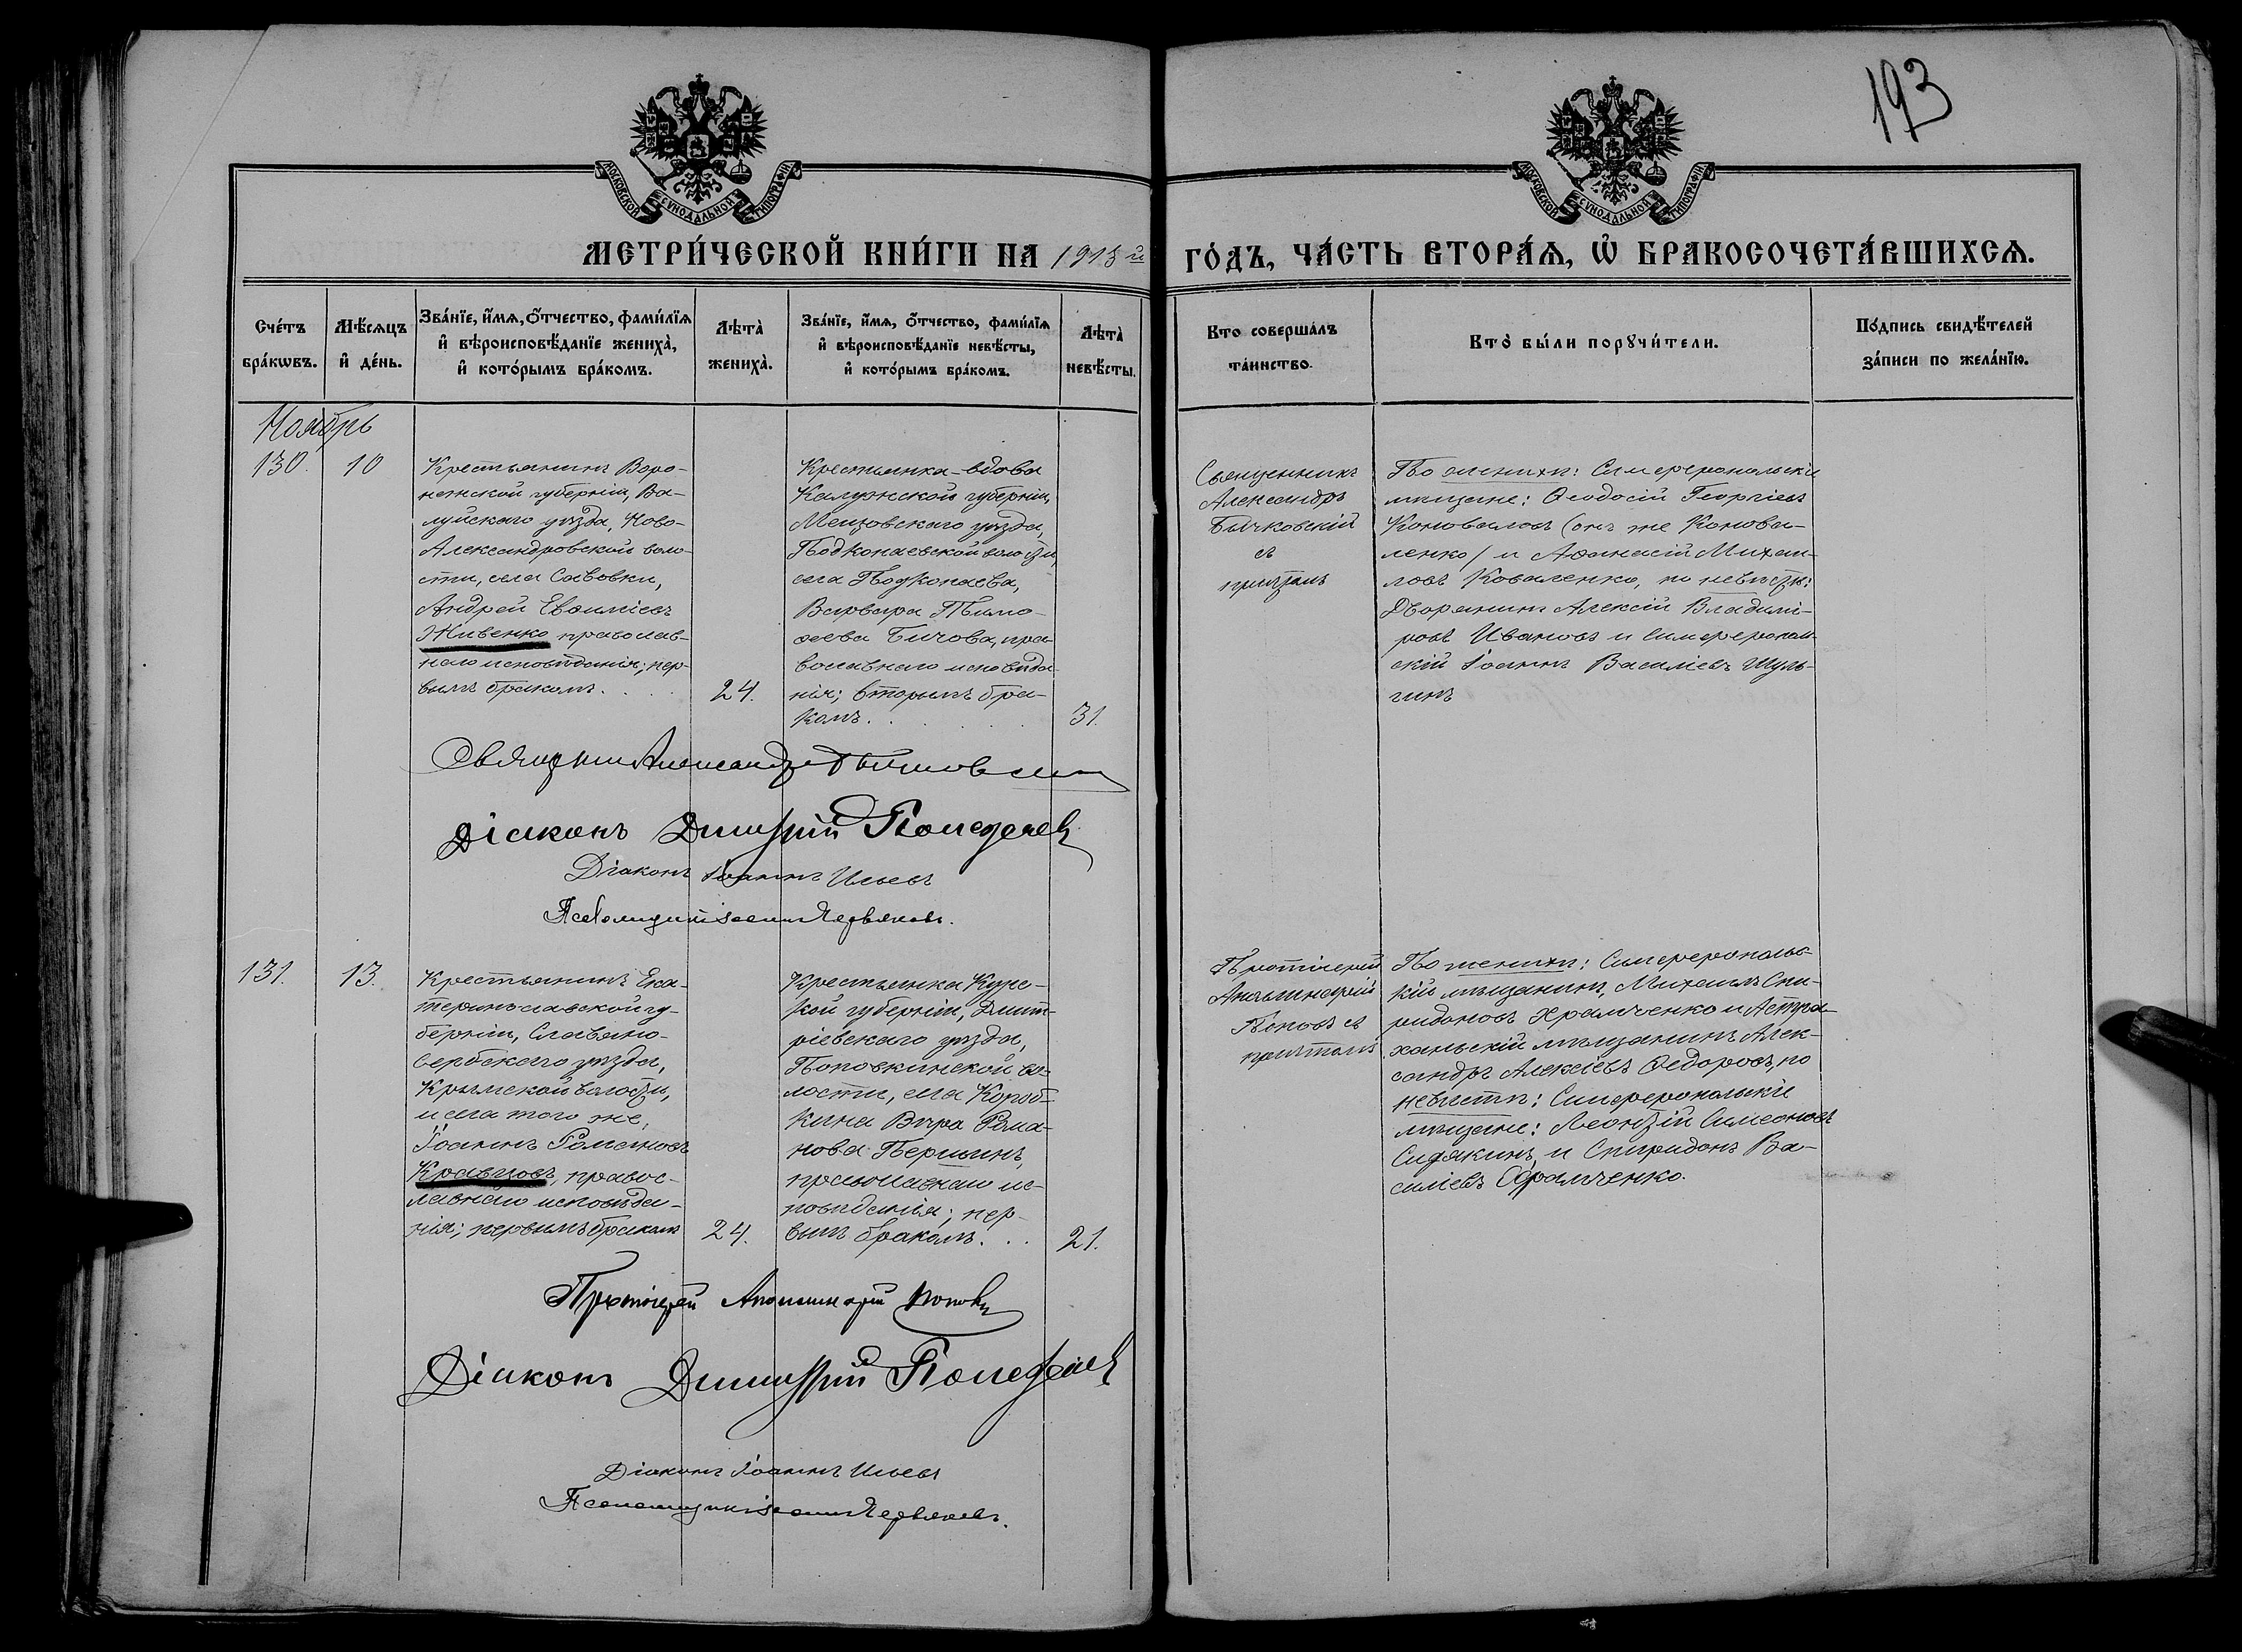 193
МОСКОВСКОЙ СѴНОДАЛЬНОЙ ТИПОГРАФІИ
МОСКОВСКОЙ СѴНОДАЛЬНОЙ ТИПОГРАФІИ
МЕТРИ́ЧЕСКОЙ КНИ́ГИ НА 1913й ГО́ДЪ, ЧА́СТЬ ВТОРА́Ѧ, Ѡ҆ БРАКОСОЧЕТА́ВШИХСѦ.
Сче́тъ
бра́кѡвъ.
Мѣ́сѧцъ
и҆ де́нь.
Зва́нїе, и҆́мѧ, ѻ҆́тчество, фами́лїѧ
и҆ вѣроисповѣ́данїе жениха̀,
и҆ кото́рымъ бра́комъ.
Лѣта̀
жениха̀.
Зва́нїе, и҆́мѧ, ѻ҆́тчество, фами́лїѧ
и҆ вѣроисповѣ́данїе невѣ́сты,
и҆ кото́рымъ бра́комъ.
Лѣта̀
невѣ́сты.
Кто соверша́лъ
та́инство.
Кто̀ бы́ли порꙋчи́тели.
По́дпись свидѣ́телей
за́писи по жела́нїю.
Ноябрь
130.
10
Крестьянинъ Воро-
нежской губерніи, Ва-
луйскаго уѣзда, Ново-
Александровской воло-
сти, села Савовки,
Андрей Евѳиміевъ
Живенко православ-
наго исповѣданія; пер-
вымъ бракомъ.
24.
Крестьянка-вдова
Калужской губерніи,
Мещовскаго уѣзда,
Подкопаевской волости,
села Подкопаева,
Варвара Тимо-
ѳеева Бичова, пра-
вославнаго исповѣда-
нія; вторымъ бра-
комъ.
31.
Священникъ
Александръ
Бычковскій
съ
причтомъ
По женихѣ: Симферопольскіе
мѣщане: Ѳеодосій Георгіевъ
Коноваловъ (онъ же Конова-
ленко) и Аѳанасій Михаи-
ловъ Коваленко, по невѣстѣ:
Дворянинъ Алексій Владимі-
ровъ Ивановъ и Симферополь-
скій Іоаннъ Василіевъ Шуль-
гинъ
Священникъ Александръ Бычковскій
Діаконъ Димитрій Понедѣлевъ
Діаконъ Іоаннъ Ильевъ
Псаломщикъ Іоаннъ Червяковъ.
131.
13.
Крестьянинъ Ека-
теринославской гу-
берніи, Славяно-
сербскаго уѣзда,
Крымской волости,
и села того же,
Іоаннъ Романовъ
Кравцовъ, правос-
лавнаго исповѣда-
нія; первымъ бракомъ
24.
Крестьянка Курс-
кой губерніи, Дмит-
ріевскаго уѣзда,
Поповкинской во-
лости, села Короб-
кина Вѣра Рома-
нова Першинъ,
православнаго ис-
повѣданія; пер-
вымъ бракомъ.
21.
Протоіерей
Аполлинарій
Поповъ съ
причтомъ
По женихѣ: Симферопольс-
кій мѣщанинъ, Михаилъ Спи-
ридоновъ Храмченко и Астра-
ханьскій мѣщанинъ Алек-
сандръ Алексіевъ Ѳедоровъ, по
невѣстѣ: Симферопольскіе
мѣщане: Леонтій Симеоновъ
Сидякинъ и Спиридонъ Ва-
силіевъ Храмченко.
Протоіерей Аполлинарій Поповъ
Діаконъ Димитрій Понедѣлевъ
Діаконъ Іоаннъ Ильевъ
Псаломщикъ Іоаннъ Червяковъ.